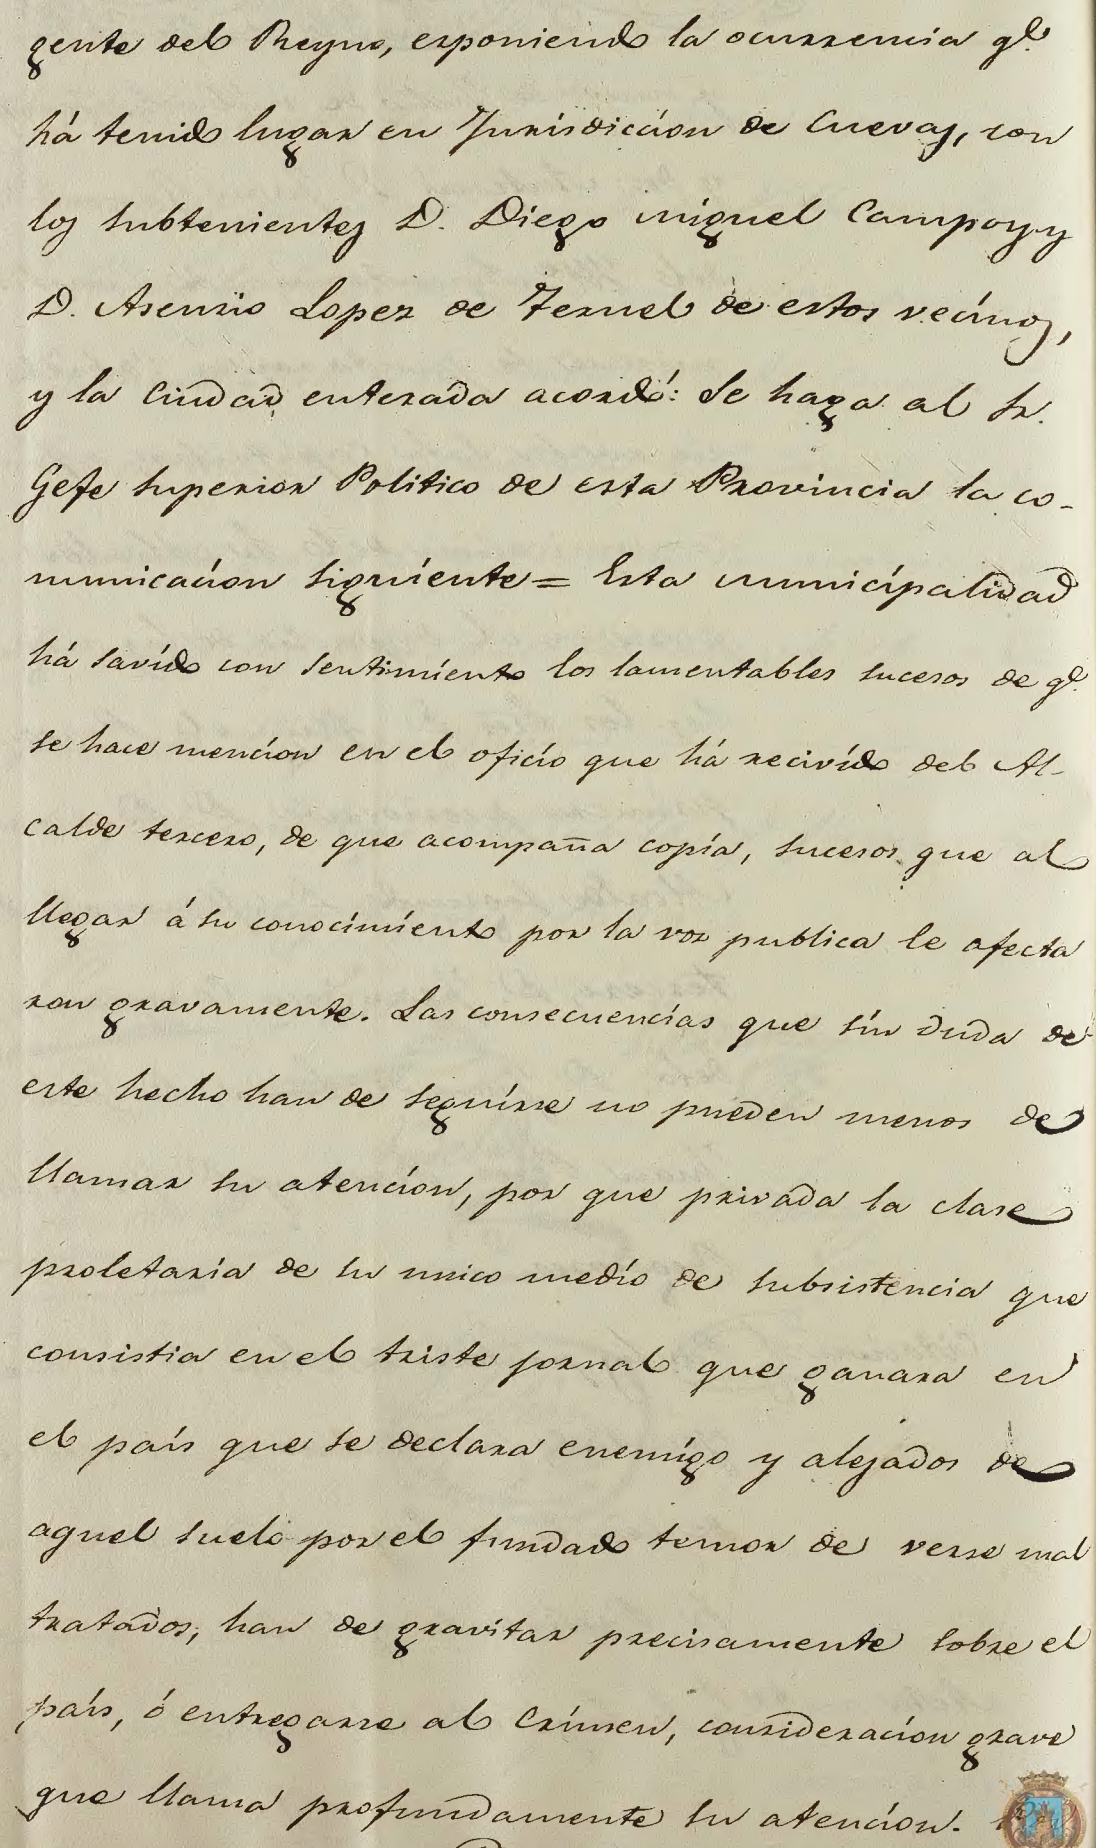 gente del Reyno, exponiendo la ocurrencia qe.
há tenido lugar en Jurisdiccion de Cuevas, con
los subtenientes D. Diego miguel Campoy y
D. Asensio Lopez de Teruel de estos vecinos,
y la Ciudad enterada acordó: Se haga al Sr.
Gefe superior Politico de esta Provincia la co-
municacion siguiente = Esta municipalidad
há savido con sentimiento los lamentables sucesos de qe.
se hace mencion en el oficio que há recivido del Al-
calde tercero, de que acompaña copia, sucesos que al
llegar á su conocimiento por la voz publica le afecta
ron gravamente. Las consecuencias que sin duda de
este hecho han de seguirse no pueden menos de
llamar su atencion, por que privada la clase
proletaria de su unico medio de subsistencia que
consistia en el triste jornal que ganara en
el país que se declara enemigo y alejados de
aquel suelo por el fundado temor de verse mal
tratados, han de gravitar precisamente sobre el
país, ó entregarse al Crimen, consideracion grave
que llama profundamente su atencion.